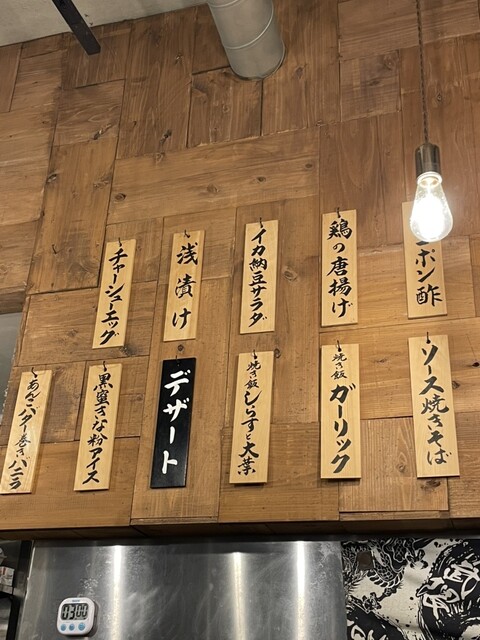 ポン酢
鶏の唐揚げ
イカ納豆サラダ
浅漬け
チャーシューエッグ
ソース焼きそば
焼き飯 ガーリック
焼き飯 しらすと大葉
デザート
黒蜜きな粉アイス
あんこバター巻きバニラ
0300